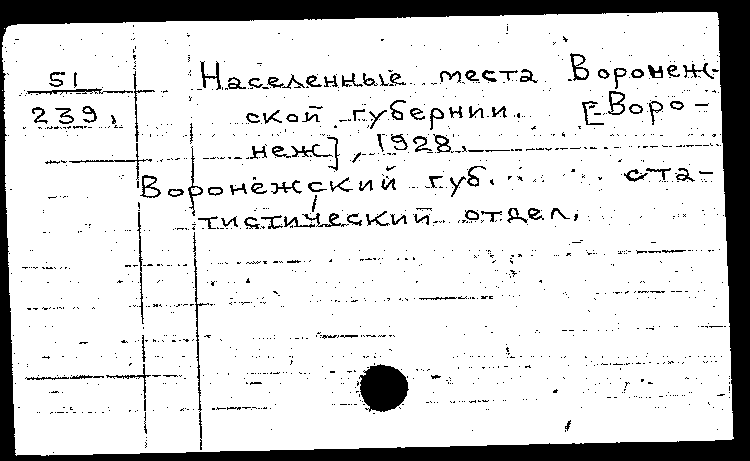 51 Населенные места Воронеж-
239. ской губернии. [Воро-
неж], 1928.
Воронежский губ. ста-
тистический отдел.